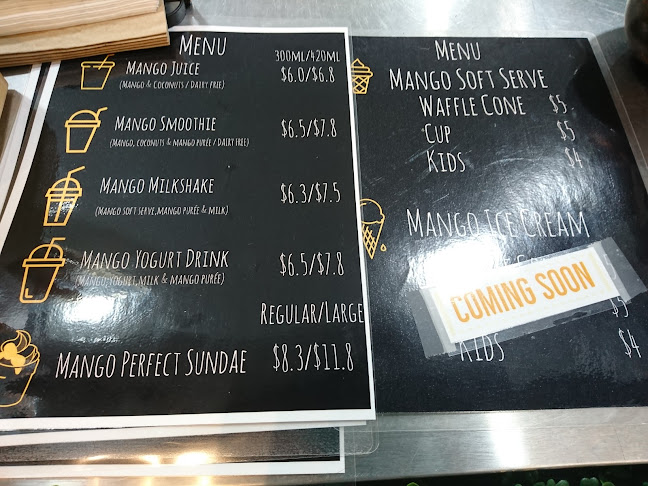 MENU
300ML/420ML
MANGO JUICE $6.0/$6.8
(MANGO & COCONUTS / DAIRY FREE)
MANGO SMOOTHIE $6.5/$7.8
(MANGO, COCONUTS & MANGO PURÉE / DAIRY FREE)
MANGO MILKSHAKE $6.3/$7.5
(MANGO SOFT SERVE, MANGO PURÉE & MILK)
MANGO YOGURT DRINK $6.5/$7.8
(MANGO, YOGURT, MILK & MANGO PURÉE)
REGULAR/LARGE
MANGO PERFECT SUNDAE $8.3/$11.8
MENU
MANGO SOFT SERVE
WAFFLE CONE $5
CUP $5
KIDS $4
MANGO ICE CREAM
COMING SOON
$5
KIDS $4